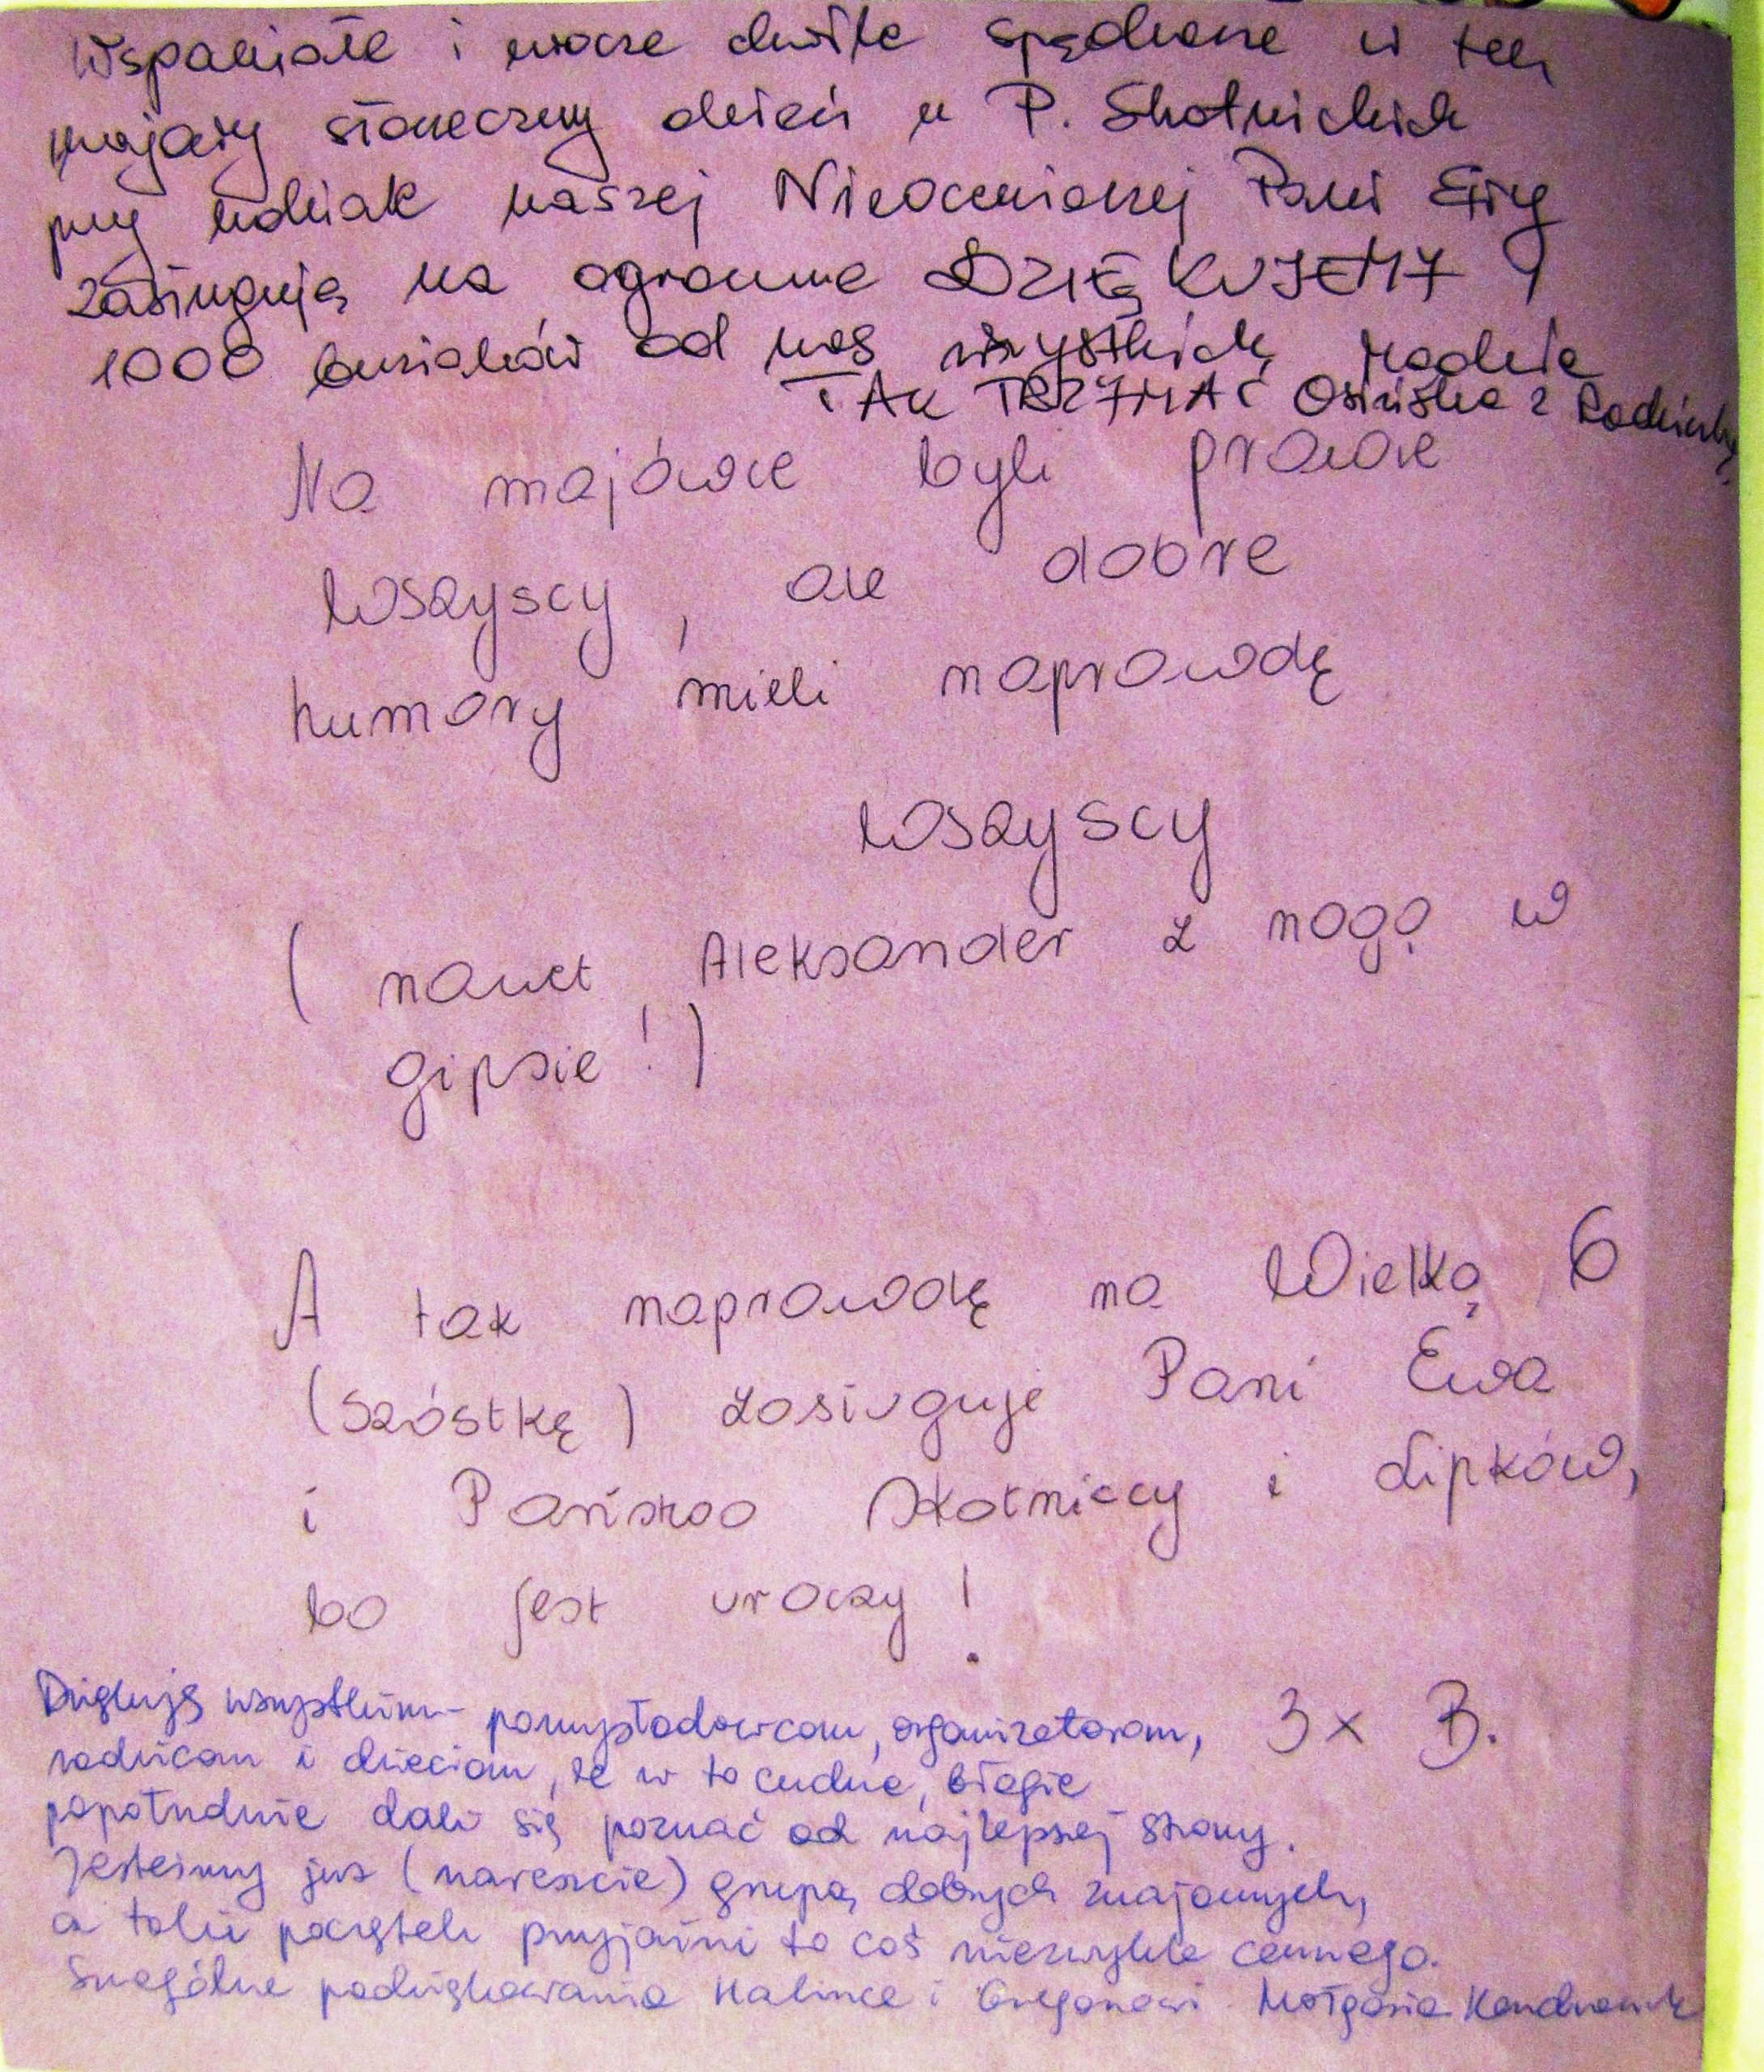 Wspaniałe i urocze chwile spędzone w ten
majowy słoneczny dzień u P. Skotnickich
przy udziale naszej Nieocenionej Pani Ewy
zasługują na ogromne DZIĘKUJEMY !
1000 buziaków od nas wszystkich
TAK TRZYMAĆ z Rodzinką
Na majówce byli prawie
wszyscy, ale dobre
humory mieli naprawdę
wszyscy
( nawet Aleksander z nogą w
gipsie ! )
A tak naprawdę na Wielką 6
(szóstkę) zasługuje Pani Ewa
i Państwo Skotniccy i Lipków,
bo jest uroczy !
3 x B.
Dziękuję wszystkim - pomysłodawcom, organizatorom,
rodzicom i dzieciom, że w to cudne, błogie
popołudnie dali się poznać od najlepszej strony.
Jesteśmy już (nareszcie) grupą dobrych znajomych,
a taki początek przyjaźni to coś niezwykle cennego.
Szczególne podziękowania Halince i Małgosia